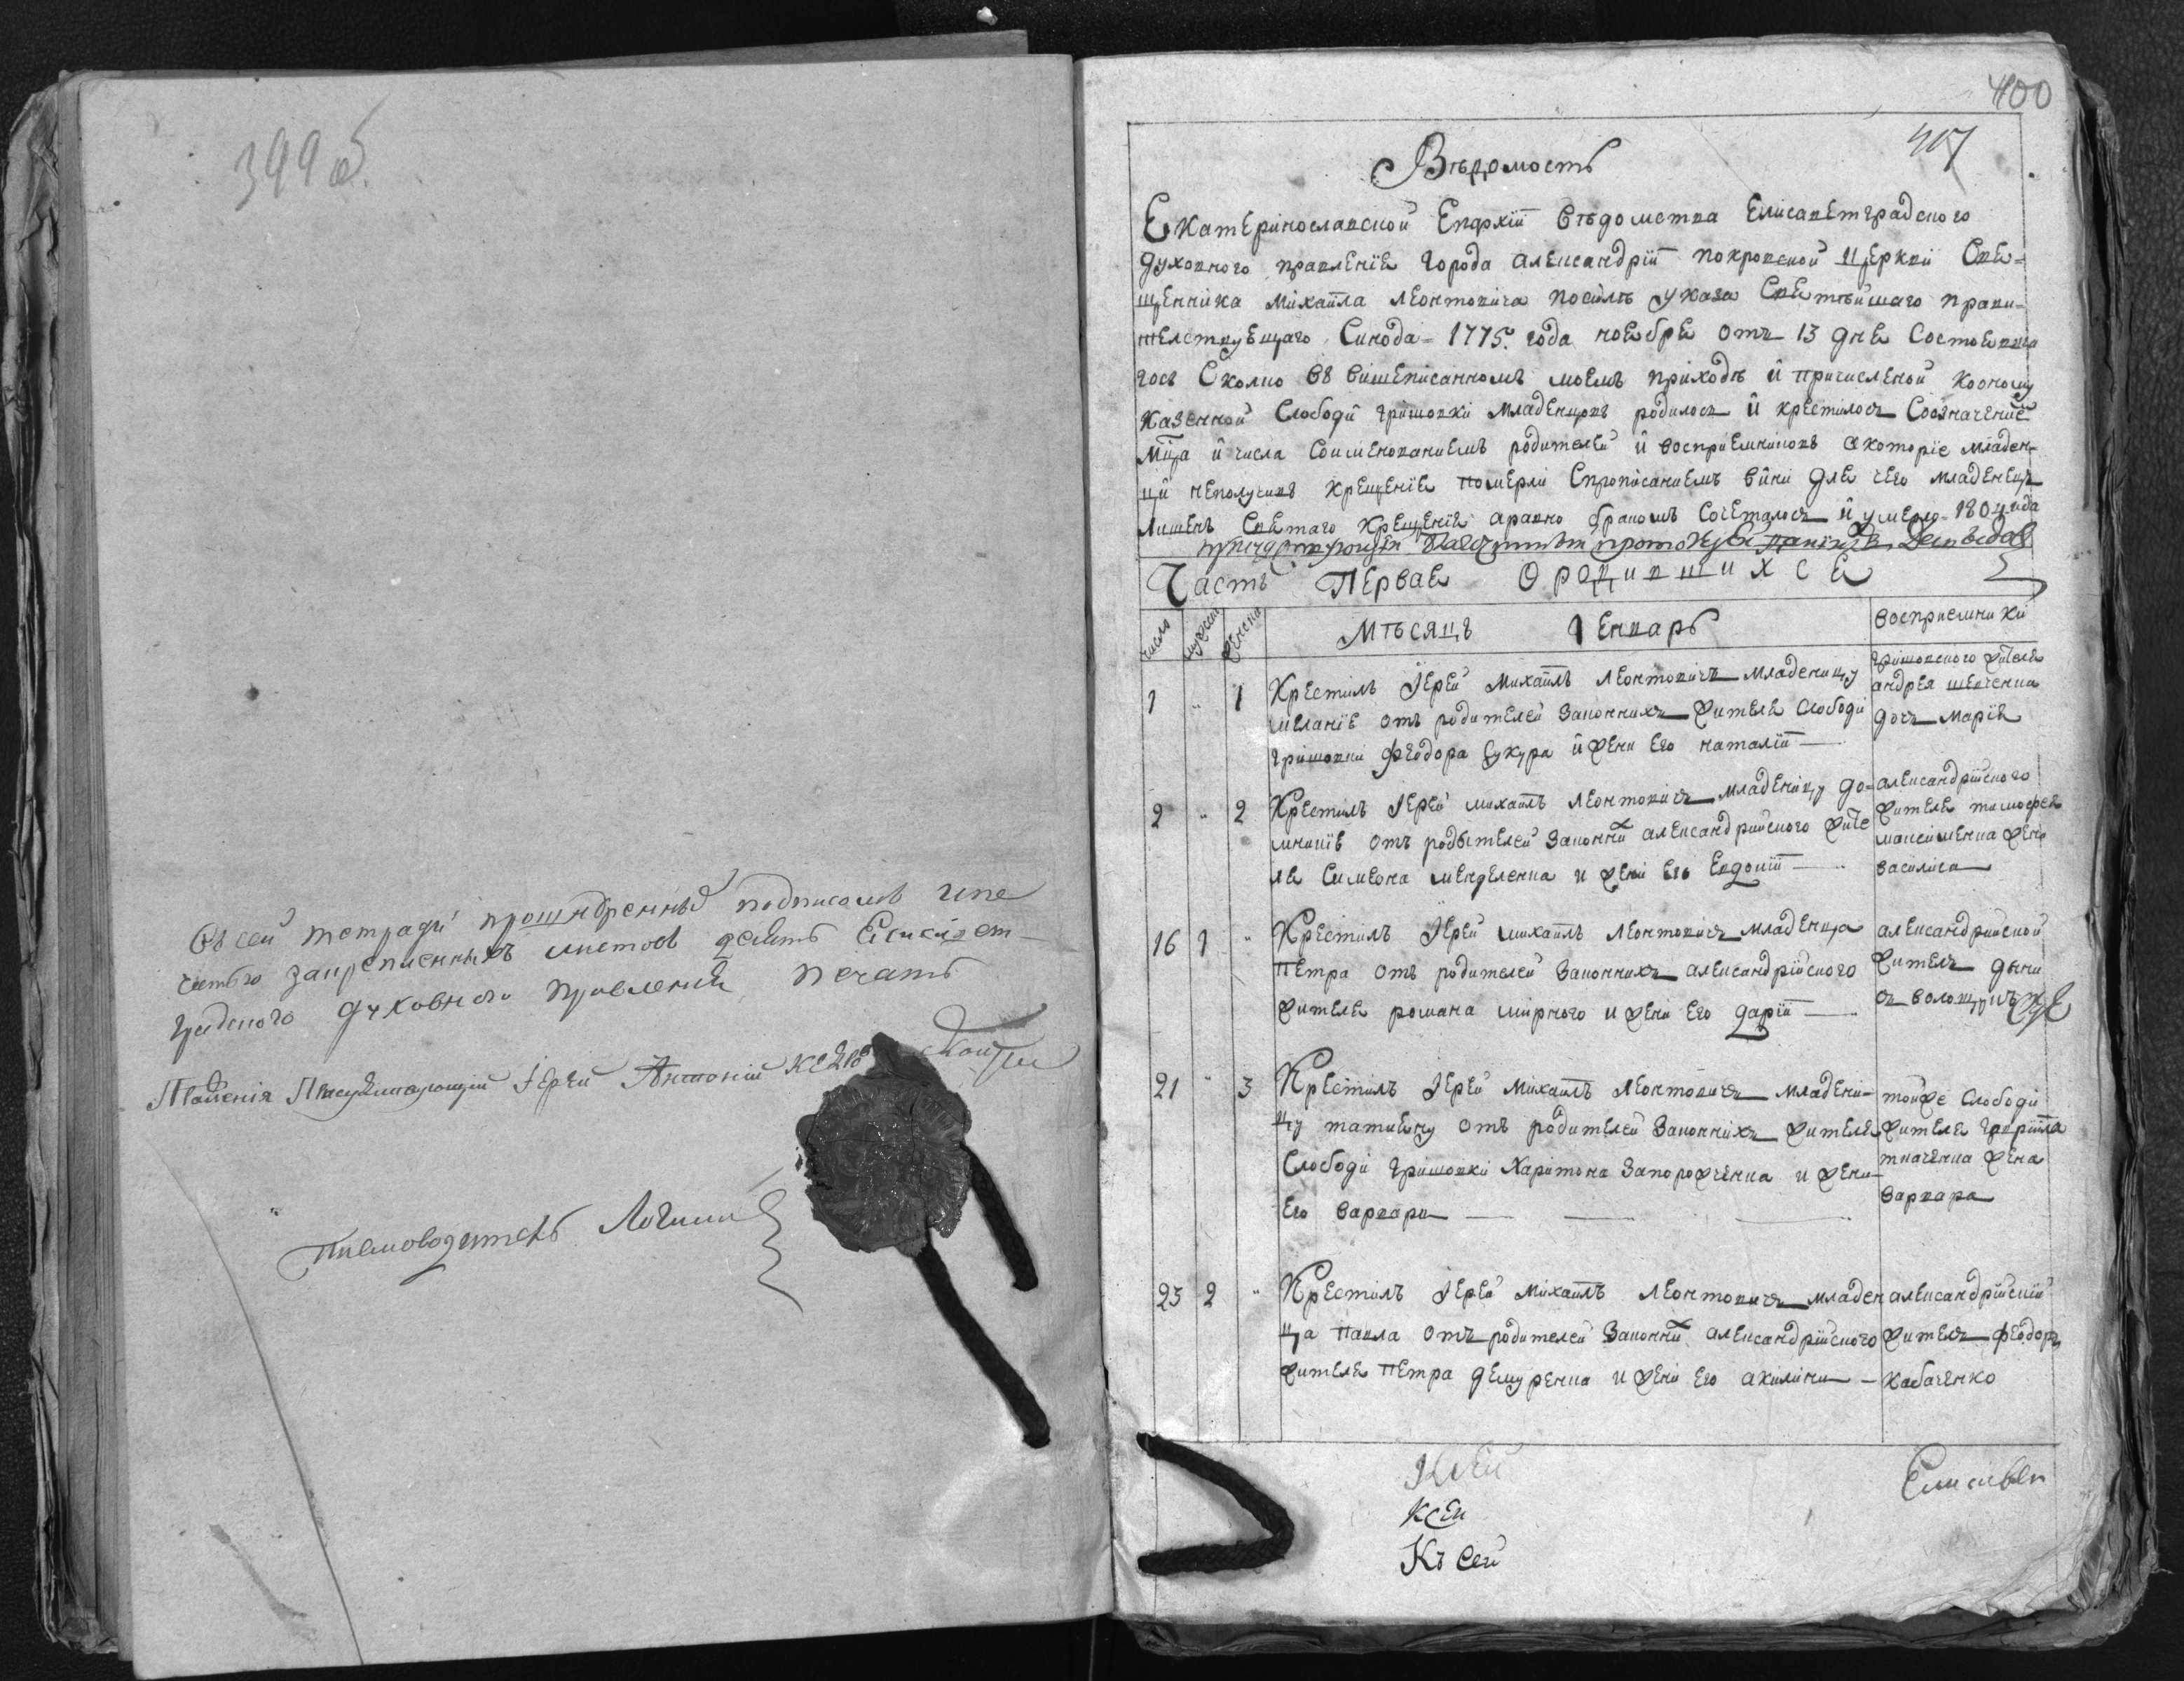 399 об.
Въ сей тетради прошнуренной подписомъ и пе
чатью закрепленныхъ листовъ девять Елисавет
градского духовного правления печать
Правленія Присудствующій Іерей Антоній
писмоводитель Логинъ
400
417
Вѣдомость
Екатеринославской Епархіи вѣдомства Елисаветградского
духовного правленія города александріи покровской Церкви Свя=
щенника Михаила леонтовича посилѣ указа Святѣйшаго прави=
телствующаго Синода = 1775. года ноября отъ 13 дня Состоявша
гося Сколко въ вишеписанномъ моемъ приходѣ и причисленой коному
казенной Слободи гришовки младенцовъ родилося и крестилося Соозначеніе
мца и числа Соименованиемъ родителей и восприемниковъ а которіе младен-
ци неполучивъ крещенія померли Спрописаниемъ вини для чего младенец
лишенъ Святаго крещенія аравно бракомъ Сочеталося и умерло = 180 года
Часть Первая О родившихся
число мужеска женска Мѣсяцъ Генварь восприемники
1 " 1 Крестилъ Іерей Михаилъ леонтовичъ младеницу
меланію отъ родителей законнихъ жителя слободи
гришовки феодора Цукура и жени его наталіи
гришовского жителя
андрея шевченка
дочъ марія
2 " 2 Крестилъ Іерей михаилъ леонтовичъ младеницу до=
мникію отъ родителей законни александрийского жите
ля Симеона менделенка и жени его Евдокіи
александрийского
жителя тимофея
максименка жена
василиса
16 1 " Крестилъ Іерей михаилъ леонтовичъ младенца
Петра отъ родителей законнихъ александрийского
жителя романа мирного и жени его дарии
александрийской
житель
21 " 3 Крестилъ Іерей Михаилъ леонтовичъ младени-
цу татиану отъ родителей законнихъ жителя
Слободи гришовки Харитона Запорожченка и жени
его варвари
тойже слободи
жителя гавриила
ткаченка жена
варвара
23 2 " Крестилъ Іерей Михаилъ леонтовичъ младен
ца павла отъ родителей законни александрийского
жителя Петра демуренка и жени его акилини
александрийский
житель феодоръ
кабаченко
Ксей
Къ сей